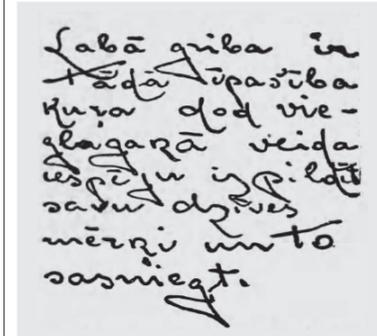 Labā griba ir
tādā īpašība
kuŗa dod vie-
glagaŗā veida
iespēju izpildīt
savu dzīves
mērķi un to
sasniegt.